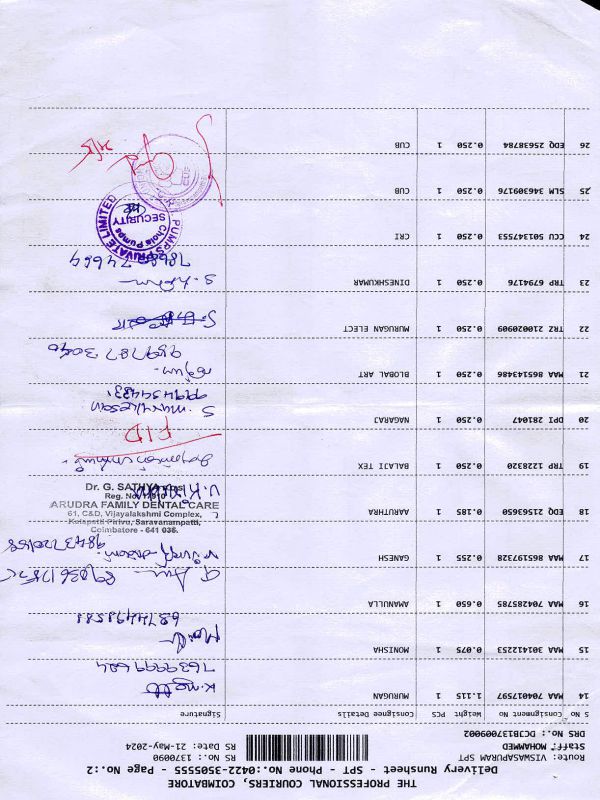 THE PROFESSIONAL COURIERS, COIMBATORE
Delivery Runsheet - SPT - Phone No.:0422-3505555 - Page No.:2
Route: VISWASAPURAM SPT RS No.: 1370090
Staff: MOHAMMED RS Date: 21-May-2024
DRS No.: DCJB137009002
S No Consignment No Weight PCS Consignee Details Signature
14 MAA 704017597 1.115 1 MURUGAN K.
7639999624
15 MAA 301412253 0.075 1 MONISHA
6374498588
16 MAA 704285785 0.650 1 AMANULLA
17 MAA 865197328 0.255 1 GANESH
9843720158
18 EDQ 21563650 0.185 1 AARUTHRA
Dr. G. SATHYA
Reg. No.
ARUDRA FAMILY DENTAL CARE
61, C&D, Vijayalakshmi Complex,
Kalapatti Pirivu, Saravanampatti,
Coimbatore - 641 035.
19 TRP 1228320 0.250 1 BALAJI TEX
FID
20 DPI 281047 0.250 1 NAGARAJ
S. murukesan
21 MAA 865143486 0.250 1 GLOBAL ART
9597873040
22 TRZ 210020909 0.250 1 MURUGAN ELECT
23 TRP 6794176 0.250 1 DINESHKUMAR
24 CCU 501347553 0.250 1 CRI
PUMPS PRIVATE LIMITED
Chola Pumps
SECURITY
25 SLM 346309176 0.250 1 CUB
26 EDQ 25638784 0.250 1 CUB